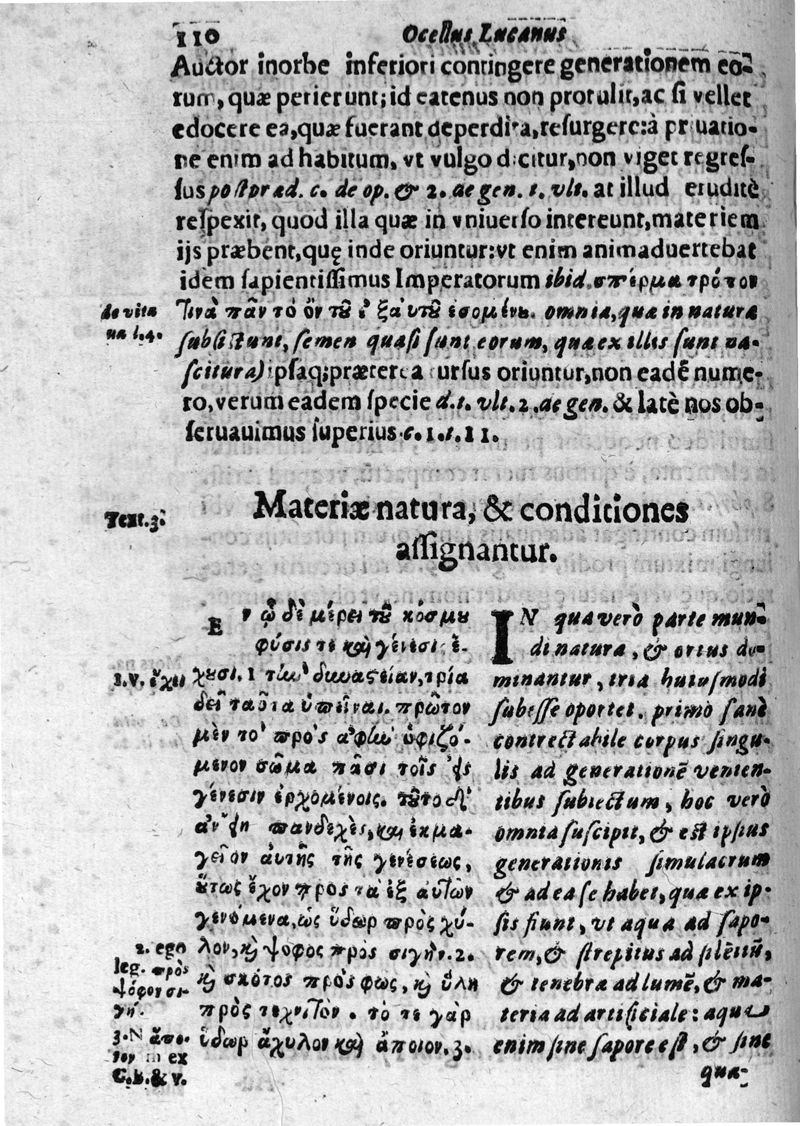 110 Ocellus Lucanus
Auctor inorbe inferiori contingere generationem eō-
rum, quæ perierunt; id eatenus non protulit, ac si vellet
edocere ea, quæ fuerant deperdita, resurgere: à priuatio-
ne enim ad habitum, vt vulgo dicitur, non viget regres-
sus post præd. c. de op. & 2. de gen. t. vlt. at illud eruditè
respexit, quod illa quæ in vniuerso intereunt, materiem
ijs præbent, quę inde oriuntur: vt enim animaduertebat
idem sapientissimus Imperatorum ibid. σπέρμα τρόπον
de vita
τινὰ πᾶν τὸ ὂν τοῦ ἐξ αὐτοῦ ἐσομένου. omnia, quæ in natura
ua l.4.
subsistunt, semen quasi sunt eorum, quæ ex illis sunt na-
scitura) ipsaq; præterea rursus oriuntur, non eadē nume-
ro, verum eadem specie d. t. vlt. 2. de gen. & latè nos ob-
seruauimus superius c. 1. t. 11.
Text. 3.
Materiæ natura, & conditiones
assignantur.
Εν ᾧ δὲ μέρει τοῦ κόσμου
φύσις τε καὶ γένεσις ἔ-
1. V. ἔχει
χουσι. 1 τὴν δυναστείαν, τρία
δεῖ ταῦτα ὑπεῖναι. πρῶτον
μὲν τὸ πρὸς ἁφὴν ὑφιζό-
μενον σῶμα πᾶσι τοῖς εἰς
γένεσιν ἐρχομένοις. τοῦτο δ'
ἂν εἴη πανδεχὲς, καὶ ἐκμα-
γεῖον αὐτῆς τῆς γενέσεως,
οὕτως ἔχον πρὸς τὰ ἐξ αὐτῶν
γενόμενα, ὡς ὕδωρ πρὸς χύ-
λον, καὶ ψόφος πρὸς σιγήν. 2.
καὶ σκότος πρὸς φως, καὶ ὕλη
πρὸς τεχνιτὸν. τό τε γὰρ
ὕδωρ ἄχυλον καὶ ἄποιον. 3.
2. ego
leg. πρὸς
ψόφον σι-
γή.
3. N ἄπο-
τον in ex
C. b. & v.
IN qua verò parte mun-
di natura, & ortus do-
minantur, tria huiusmodi
subesse oportet. primò sanè
contrectabile corpus singu-
lis ad generationē venien-
tibus subiectum, hoc verò
omnia suscipit, & est ipsius
generationis simulacrum
& ad ea se habet, quæ ex ip-
sis fiunt, vt aqua ad sapo-
rem, & strepitus ad silētiū,
& tenebræ ad lumē, & ma-
teria ad artificiale: aqua
enim sine sapore est, & sine
qua-